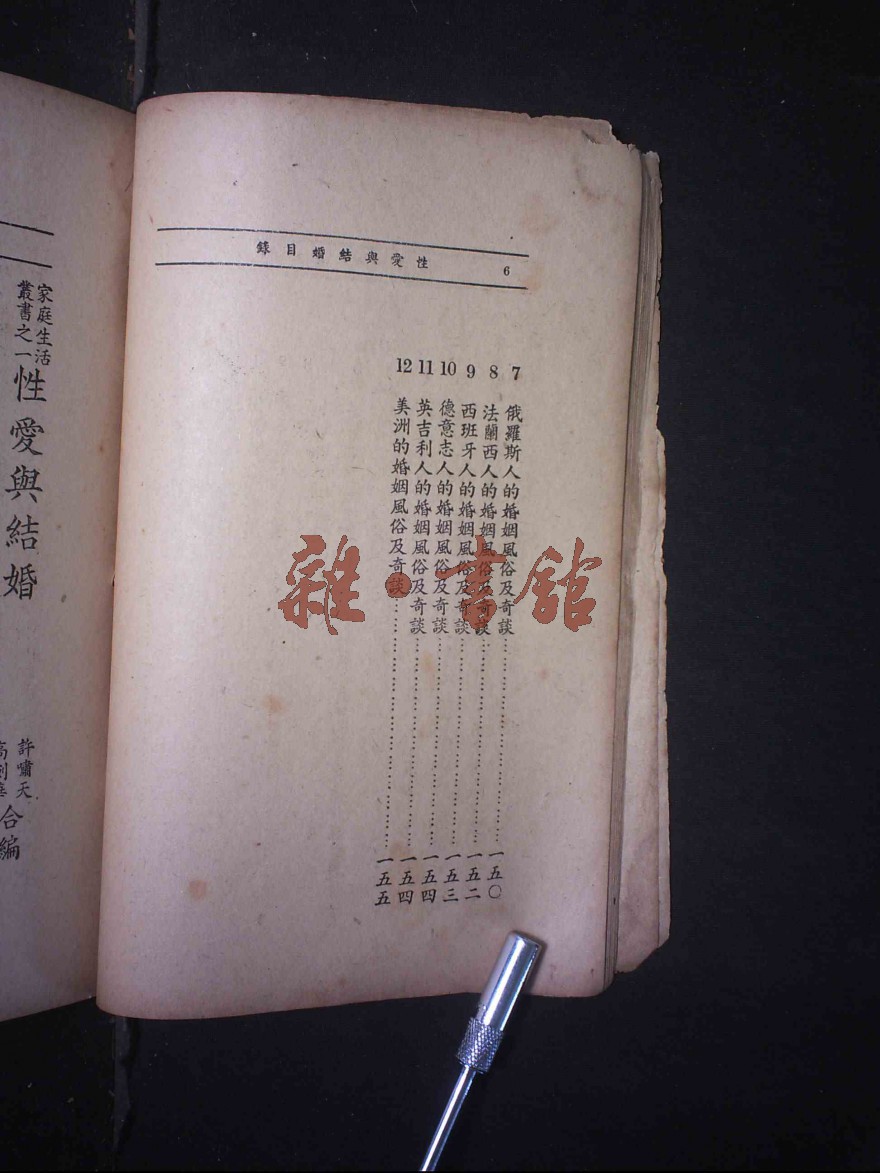 6
性愛與結婚目錄
7 俄羅斯人的婚姻風俗及奇談……一五〇
8 法蘭西人的婚姻風俗及奇談……一五二
9 西班牙人的婚姻風俗及奇談……一五三
10 德意志人的婚姻風俗及奇談……一五四
11 英吉利人的婚姻風俗及奇談……一五四
12 美洲的婚姻風俗及奇談……一五五
家庭生活
叢書之一
性愛與結婚
許嘯天
合編
雜·書館